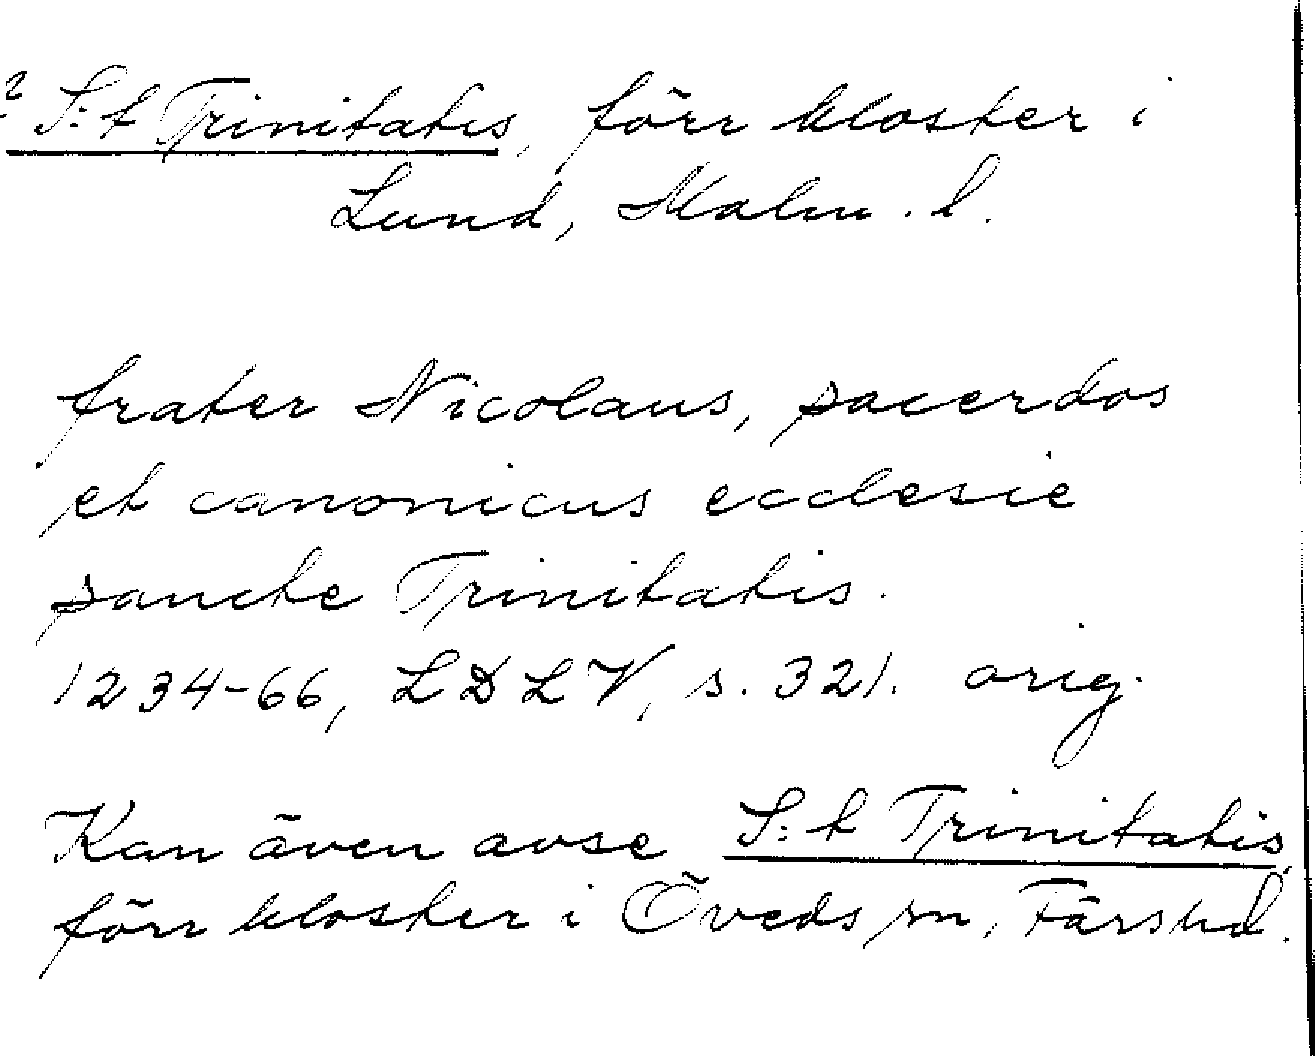 ? S:t Trinitatis, förr kloster i
Lund, Malm. l.
frater Nicolaus, sacerdos
et canonicus ecclesie
sancte Trinitatis.
1234-66, LDLV, s. 321. orig.
Kan även avse S:t Trinitatis,
förr kloster i Öveds sn, Färs hd.